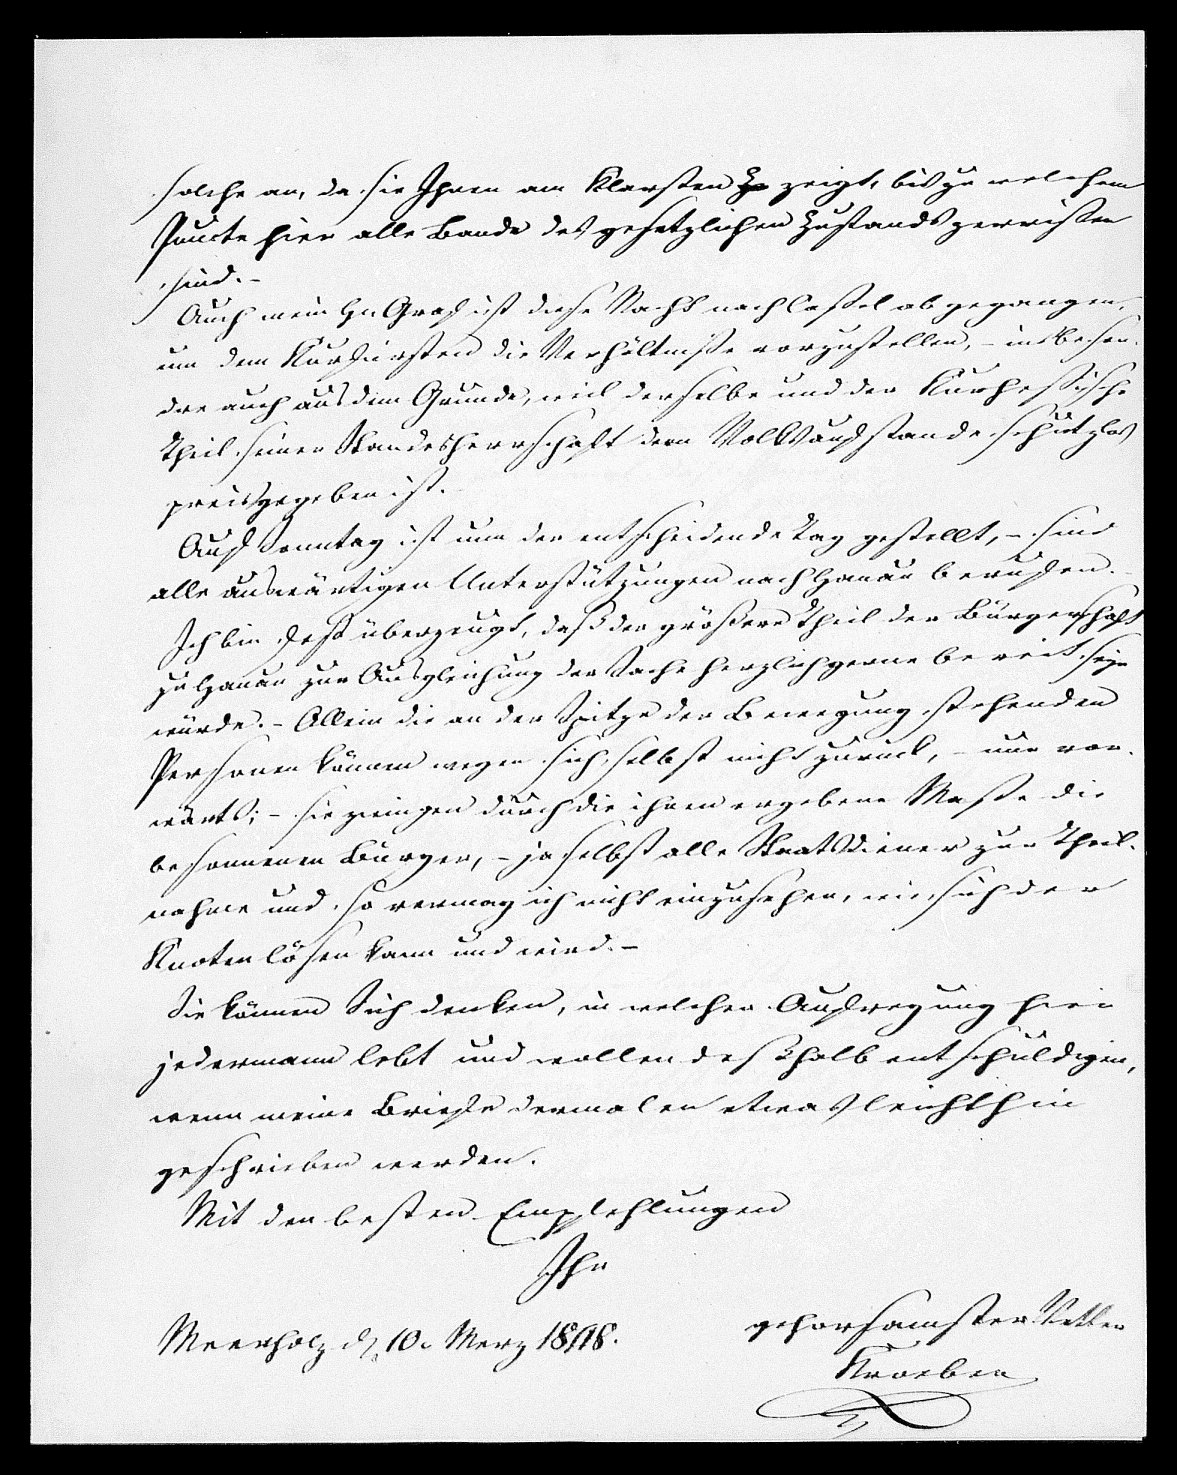 solche an, da sie Ihnen am Klarsten zeigt, bis zu welchem
Puncte hier alle Bande des gesetzlichen Zustands zerrißen
sind. –
Auch mein Hr Graf ist diese Nacht nach Caßel abgegangen,
um dem Kurfürsten die Verhältniße vorzustellen, – insbeson-
dre auch aus dem Grunde, weil derselbe und der Kurheßische
Theil seiner Standesherrschaft dem Volksaufstande schutzlos
preisgegeben ist.
Auf Sonntag ist nun der entscheidende Tag gestellt, – sind
alle auswärtigen Unterstützungen nach Hanau berufen.
Ich bin fest überzeugt, daß der größere Theil der Bürgerschaft
zu Hanau zur Ausgleichung der Sache herzlich gerne bereit seyn
würde. – Allein die an der Spitze der Bewegung stehenden
Personen können wegen sich selbst nicht zurück, – nur vor-
wärts; – sie zwingen durch die ihnen ergebene Maße die
besonnenen Bürger, – ja selbst alle Staatsdiener zur Theil-
nahme und so vermag ich nicht einzusehen, wie sich der
Knoten lösen kann und wird. –
Sie können Sich denken, in welcher Aufregung hier
jedermann lebt und wollen deßhalb entschuldigen,
wenn meine Briefe dermalen etwas leichthin
geschrieben werden.
Mit den besten Empfehlungen
Ihr
gehorsamster Vetter
Meerholz d. 10. Merz 1848.
Kroeber